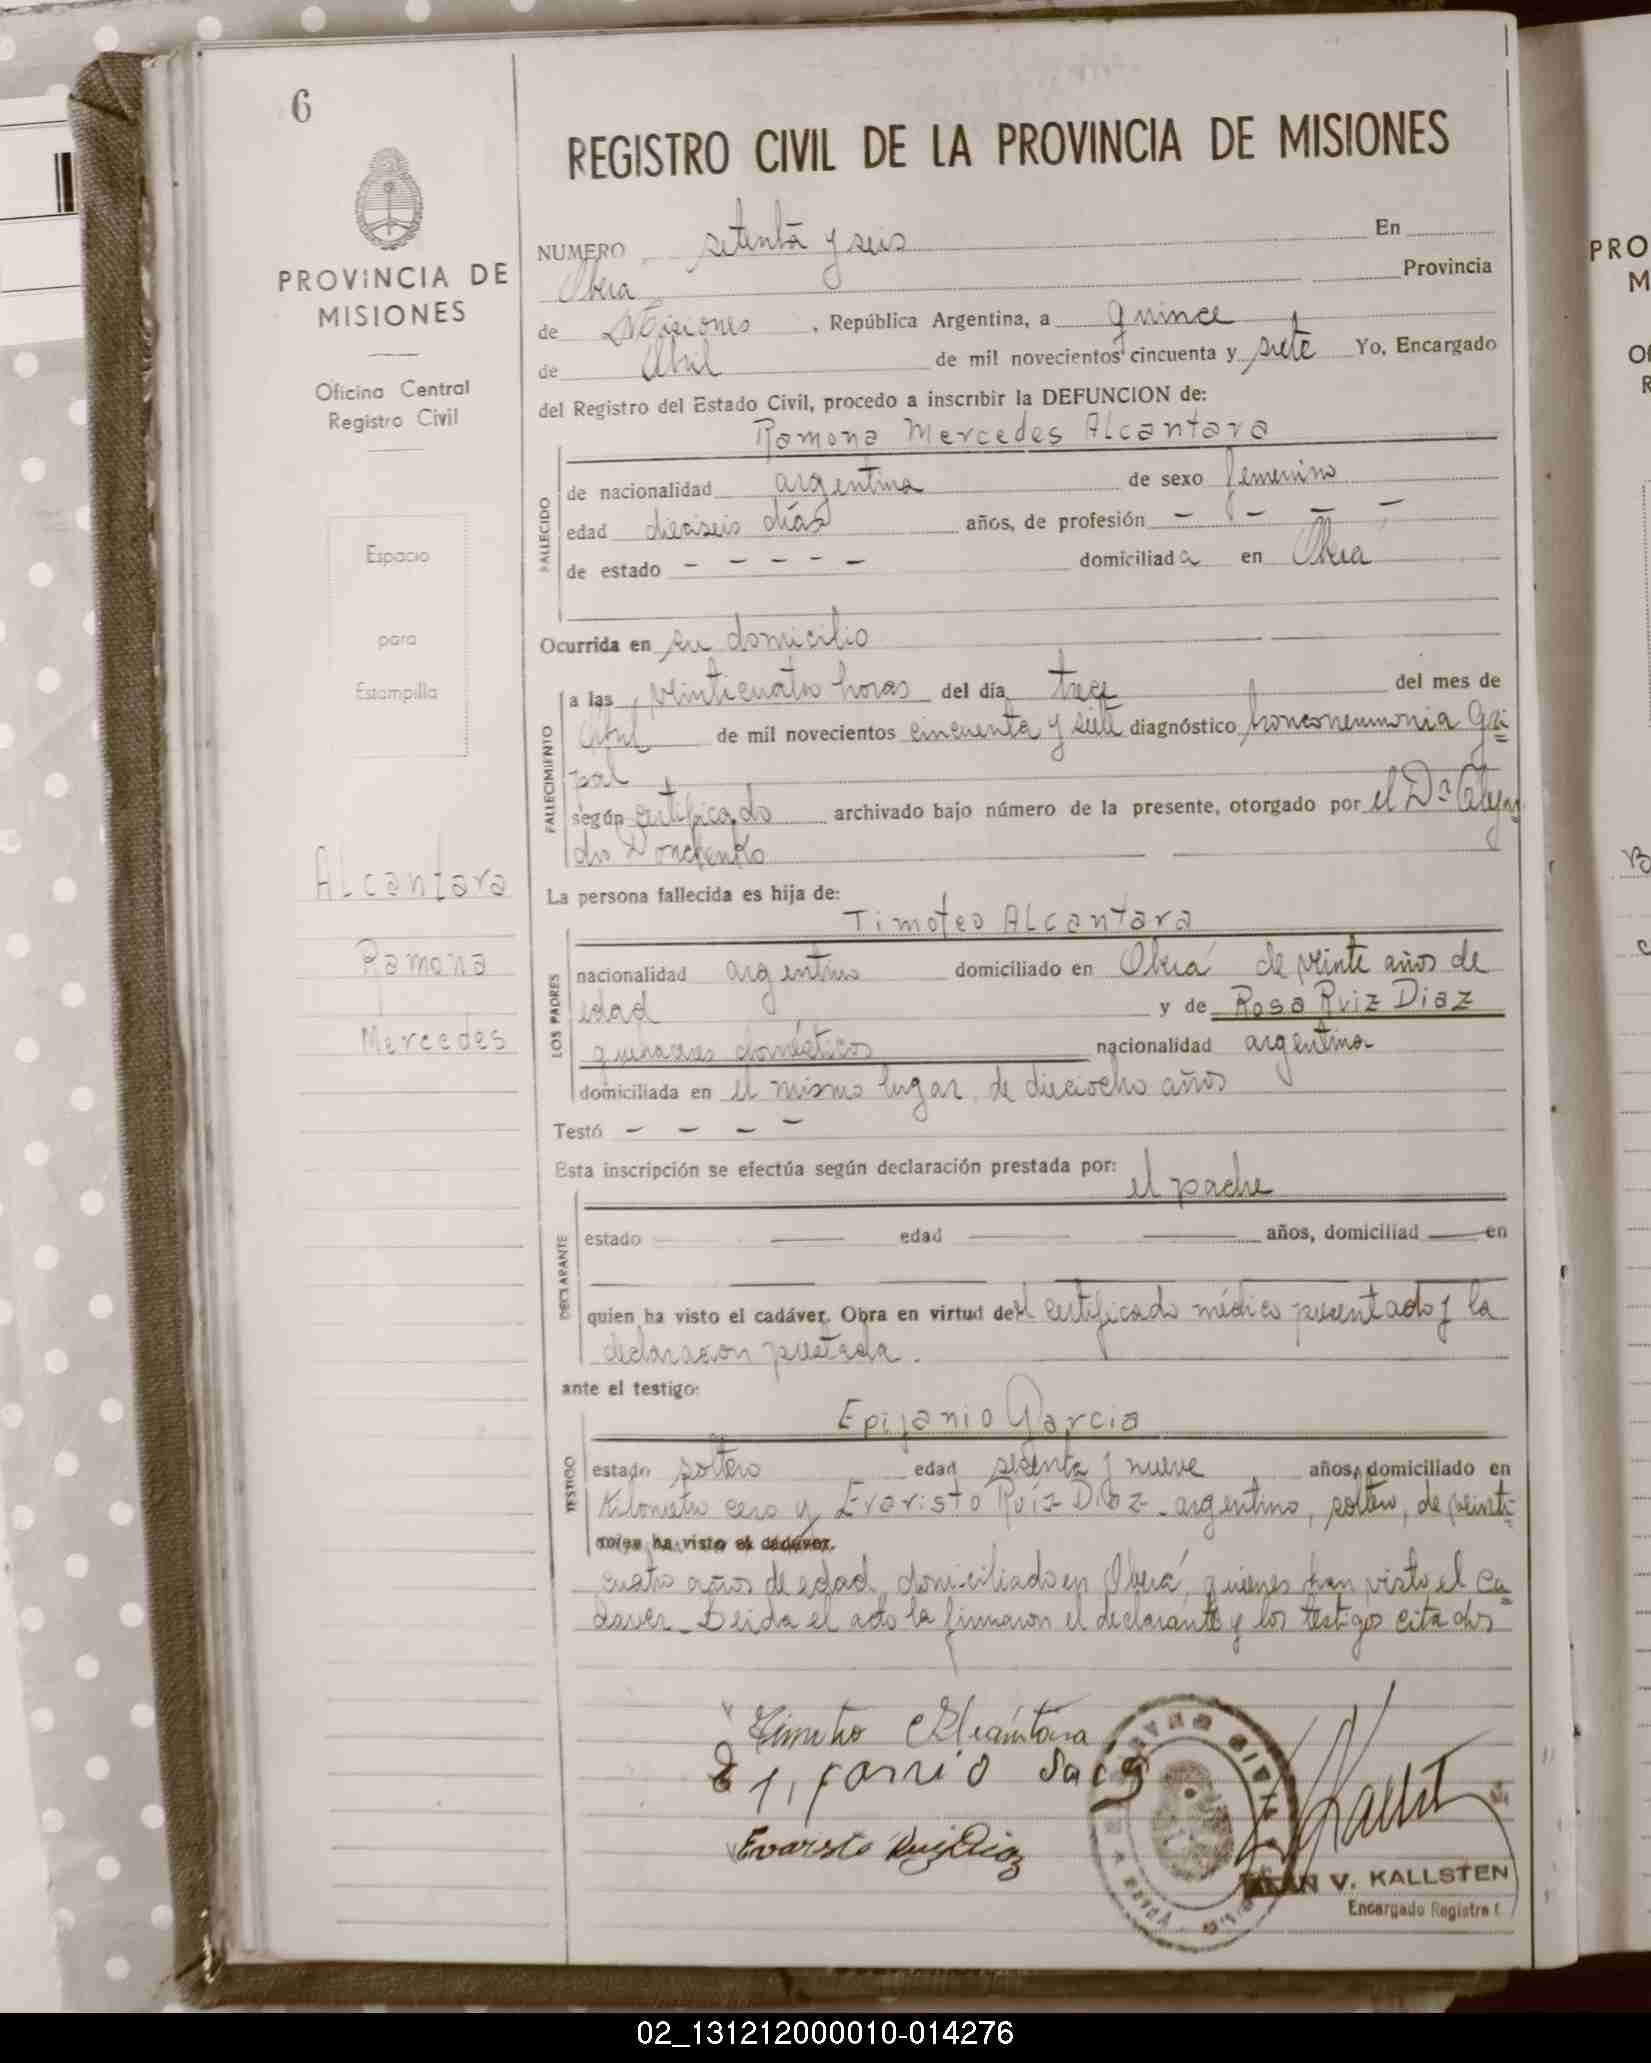 6
PROVINCIA DE
MISIONES
Oficina Central
Registro Civil
Espacio
para
Estampilla
Alcantara
Ramona
Mercedes
REGISTRO CIVIL DE LA PROVINCIA DE MISIONES
NUMERO setenta y seis En
Obera Provincia
de Misiones, República Argentina, a quince
de Abril de mil novecientos cincuenta y siete Yo, Encargado
del Registro del Estado Civil, procedo a inscribir la DEFUNCION de:
Ramona Mercedes Alcantara
FALLECIDO
de nacionalidad argentina de sexo femenino
edad dieciseis días años, de profesión - - - -
de estado - - - - - domiciliada en Obera
Ocurrida en su domicilio
FALLECIMIENTO
a las veinticuatro horas del día trece del mes de
Abril de mil novecientos cincuenta y siete diagnóstico bronconeumonia Gri
pal
según certificado archivado bajo número de la presente, otorgado por el Dr Alejan
dro Donchenko
La persona fallecida es hija de:
Timoteo Alcantara
LOS PADRES
nacionalidad argentino domiciliado en Oberá de veinte años de
edad y de Rosa Ruiz Diaz
quehaceres domésticos nacionalidad argentina
domiciliada en el mismo lugar, de dieciocho años
Testó - - - -
Esta inscripción se efectúa según declaración prestada por:
el padre
DECLARANTE
estado edad años, domiciliad en
quien ha visto el cadáver. Obra en virtud del certificado médico presentado y la
declaracion prestada.
ante el testigo:
Epifanio Garcia
TESTIGO
estado soltero edad sesenta y nueve años, domiciliado en
Kilometro cero y Evaristo Ruiz Diaz - argentino, soltero, de veinti
quien ha visto el cadáver.
cuatro años de edad, domiciliado en Oberá, quienes han visto el ca
daver - Leida el acta la firmaron el declarante y los testigos citados
Timoteo Alcántara
Evaristo Ruiz Diaz
V. KALLSTEN
Encargado Registro
PRO
M
02_131212000010-014276